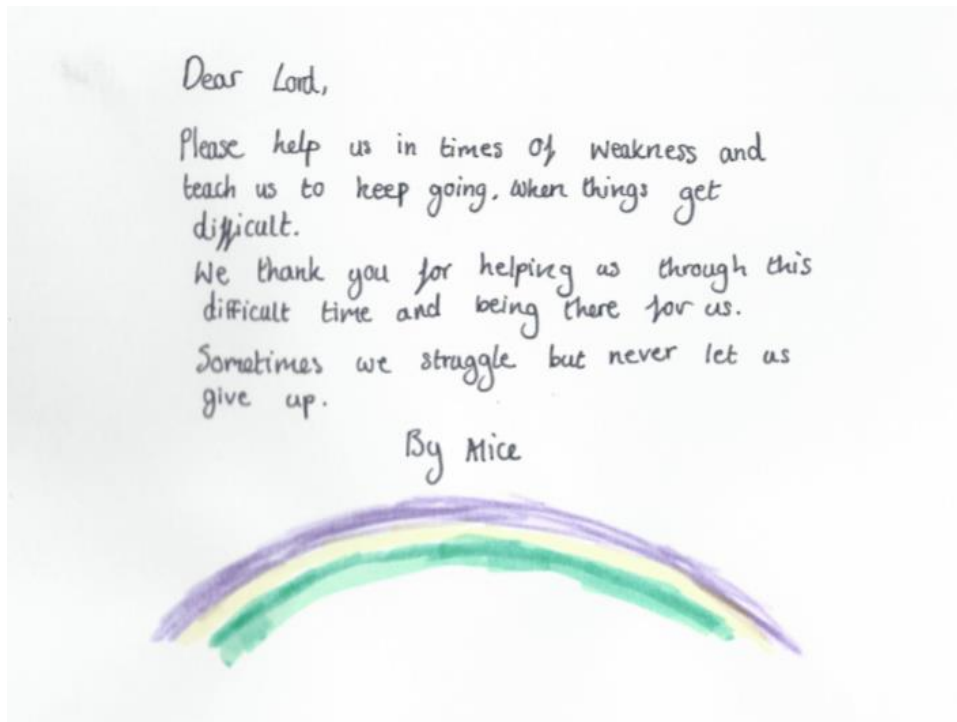 Dear Lord,
Please help us in times of weakness and
teach us to keep going. when things get
difficult.
We thank you for helping us through this
difficult time and being there for us.
Sometimes we struggle but never let us
give up.
By Alice